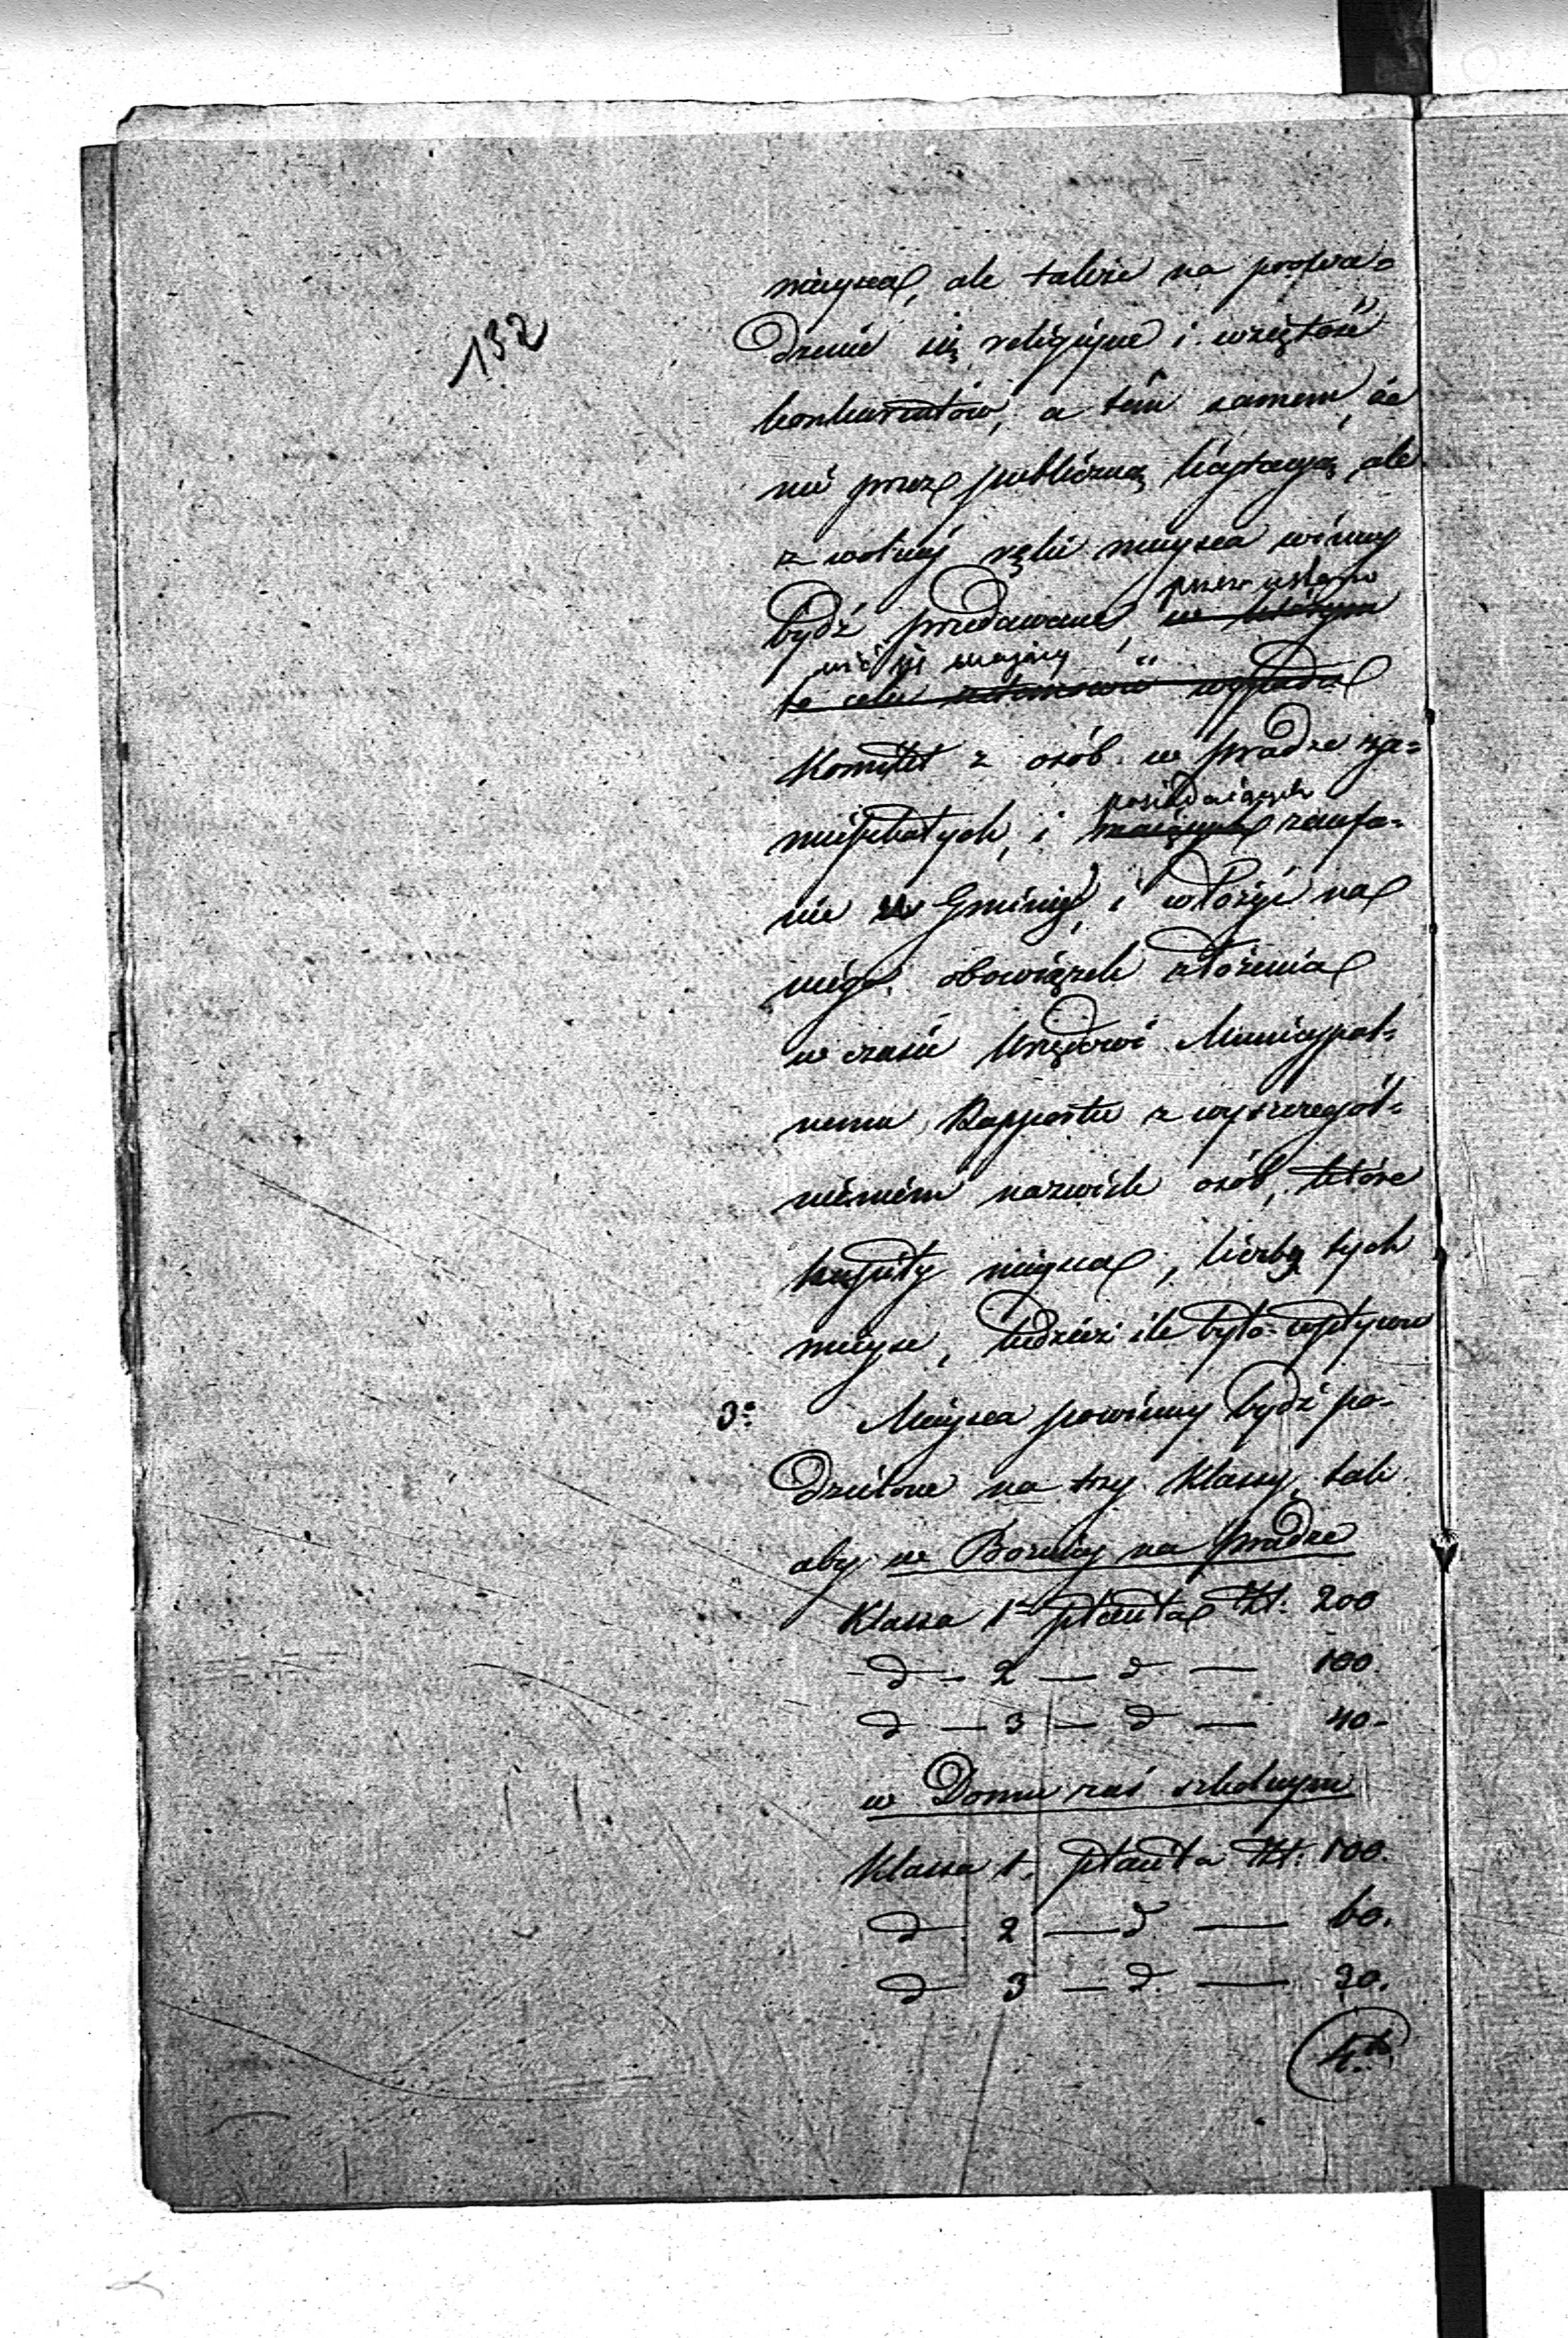 132
mieysca, ale także na prowa=
dzenie się religijne i wziętość
konkurentów, a tém samem, że
nie przez publiczną licytacyą, ale
z wolnéj ręki mieysca winny
przez ustano
bydź przedawane, w którym
wić się mający
to celu wypada
Komitet z osób w Pradze za=
mieszkałych, i posiadaiących zaufa=
nie w Gminie, i włożyć na
niego obowiązek złożenia
w czasie Urzędowi Municypal=
nemu Rapportu z wyszczegól=
nieniem nazwisk osób, które
kupiły mieysca, liczby tych
mieysc, tudzież ile było wpływu
3o Mieysca powinny bydź po=
dzielone na trzy Klassy, tak
aby w Bożnicy na Pradze
Klassa 1a płaciła Zł: 200
d — 2 — d — 100
d — 3 — d — 40-
w Domu zaś szkolnym
Klassa 1. płaciła Zł: 100.
d 2 — d — 60.
d 3 — d — 20.